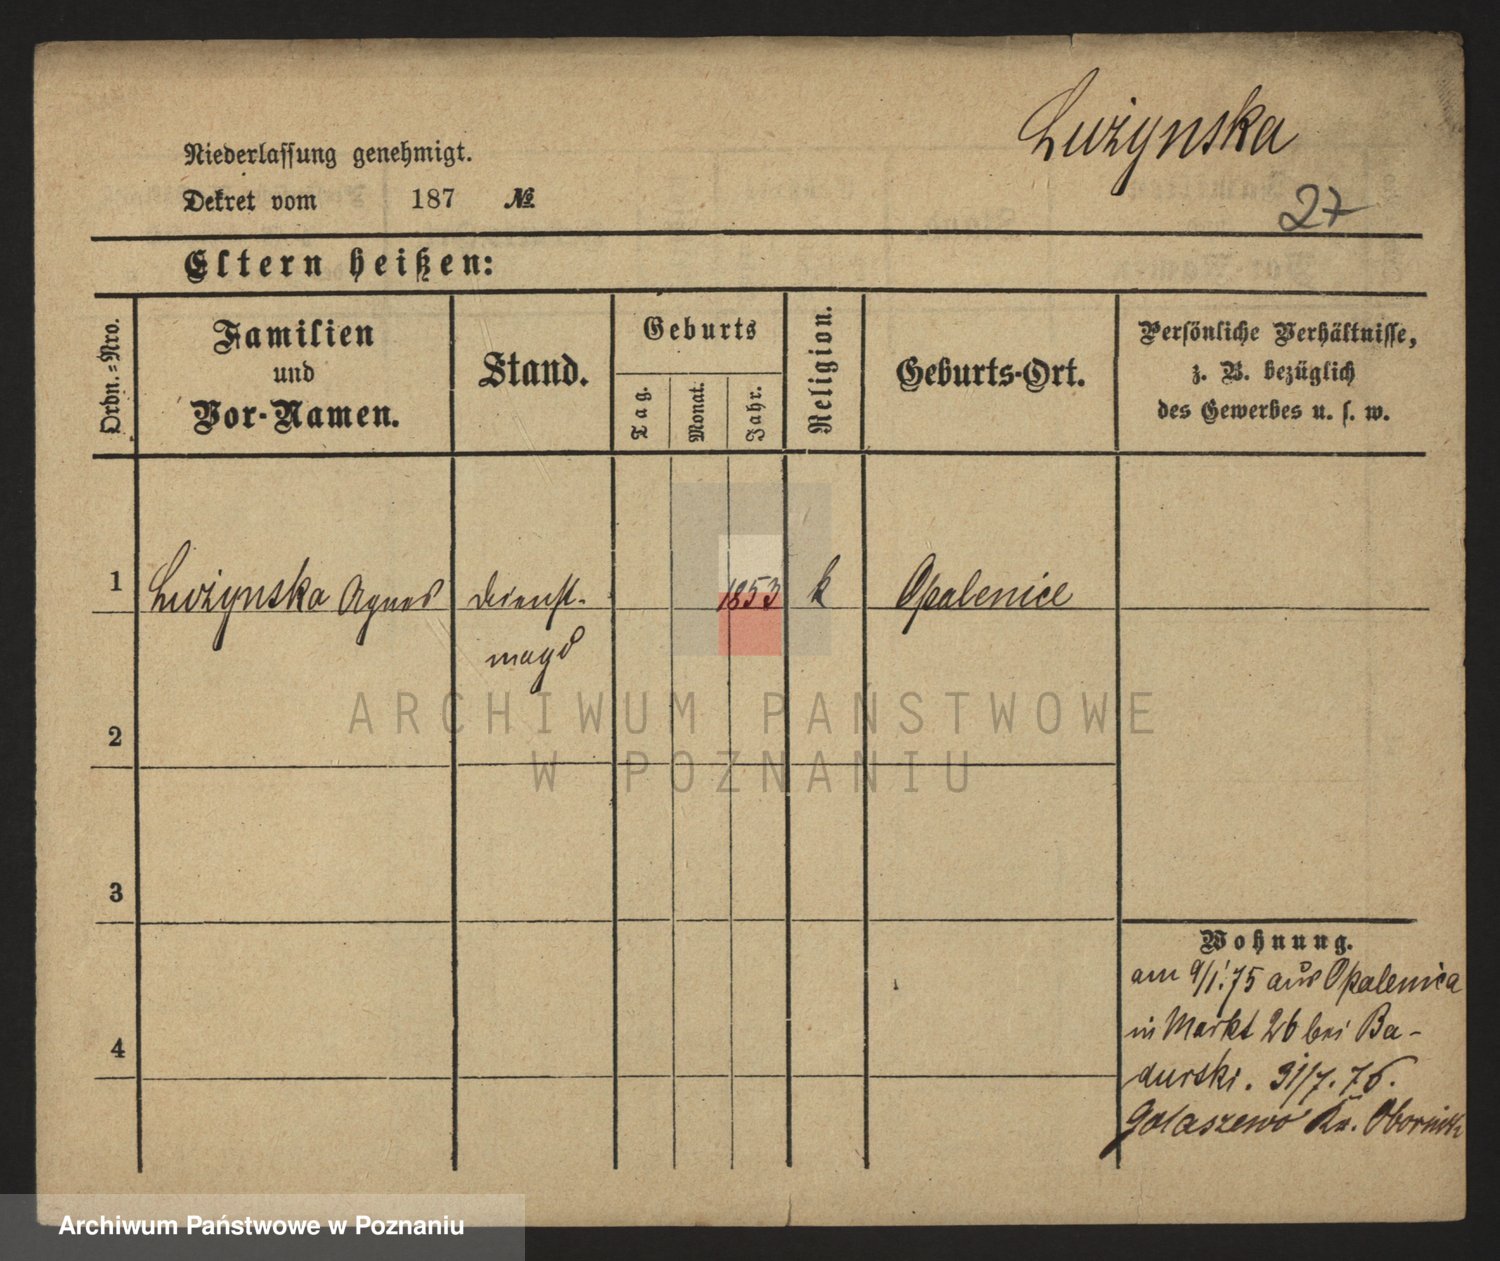 Lużynska
27
Niederlassung genehmigt.
Dekret vom 187 №
Eltern heißen:
Ordn.=Nro.
Familien
und
Vor-Namen.
Stand.
Geburts
Tag.
Monat.
Jahr.
Religion.
Geburts-Ort.
Persönliche Verhältnisse,
z. B. bezüglich
des Gewerbes u. s. w.
1 Lużynska Agnes Dienst- 1853 k Opalenice
magd
2
3
4
Wohnung.
am 9/1.75 aus Opalenica
in Markt 26 bei Ba-
durski. 31/7. 76.
Golaszewo Kr. Obornik
ARCHIWUM PAŃSTWOWE
W POZNANIU
Archiwum Państwowe w Poznaniu